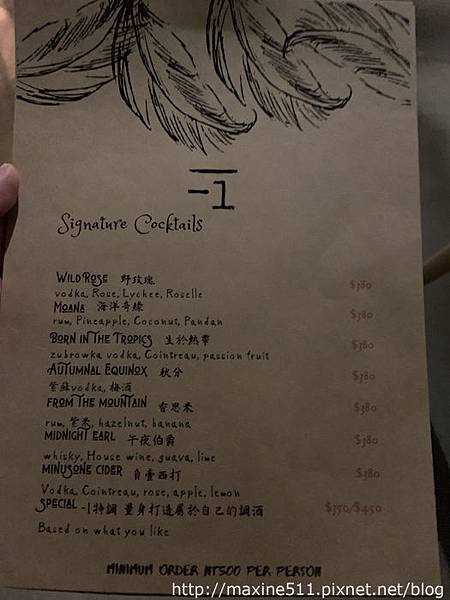 -1
Signature Cocktails
WILD ROSE 野玫瑰 $380
vodka, Rose, Lychee, Roselle
MOANA 海洋奇緣 $380
rum, Pineapple, Coconut, Pandan
BORN IN THE TROPICS 生於熱帶 $380
zubrowka vodka, Cointreau, passion fruit
AUTUMNAL EQUINOX 秋分 $380
紫蘇vodka, 梅酒
FROM THE MOUNTAIN 香思米 $380
rum, 紫米, hazelnut, banana
MIDNIGHT EARL 午夜伯爵 $380
whisky, House wine, guava, lime
MINUSONE CIDER 自壹西打 $380
Vodka, Cointreau, rose, apple, lemon
SPECIAL -1特調 量身打造屬於自己的調酒 $350/$450
Based on what you like
MINIMUM ORDER NT500 PER PERSON
http://maxine511.pixnet.net/blog